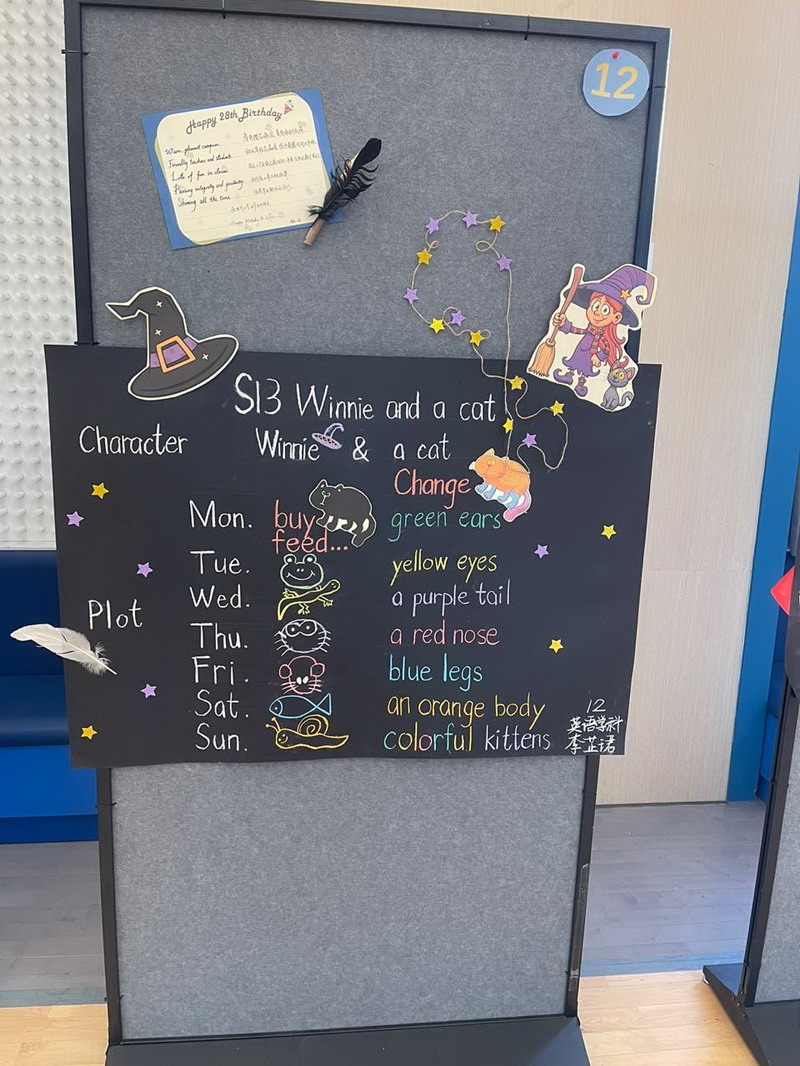 12
Happy 28th Birthday
Warm, pleasant campus
Friendly teachers and students
Lots of fun in classes
Shining all the time
S13 Winnie and a cat
Character Winnie & a cat
Change
Mon. buy green ears
feed...
Tue. yellow eyes
Wed. a purple tail
Plot
Thu. a red nose
Fri. blue legs
Sat. an orange body
Sun. colorful kittens
12
英语学科
李芷珺